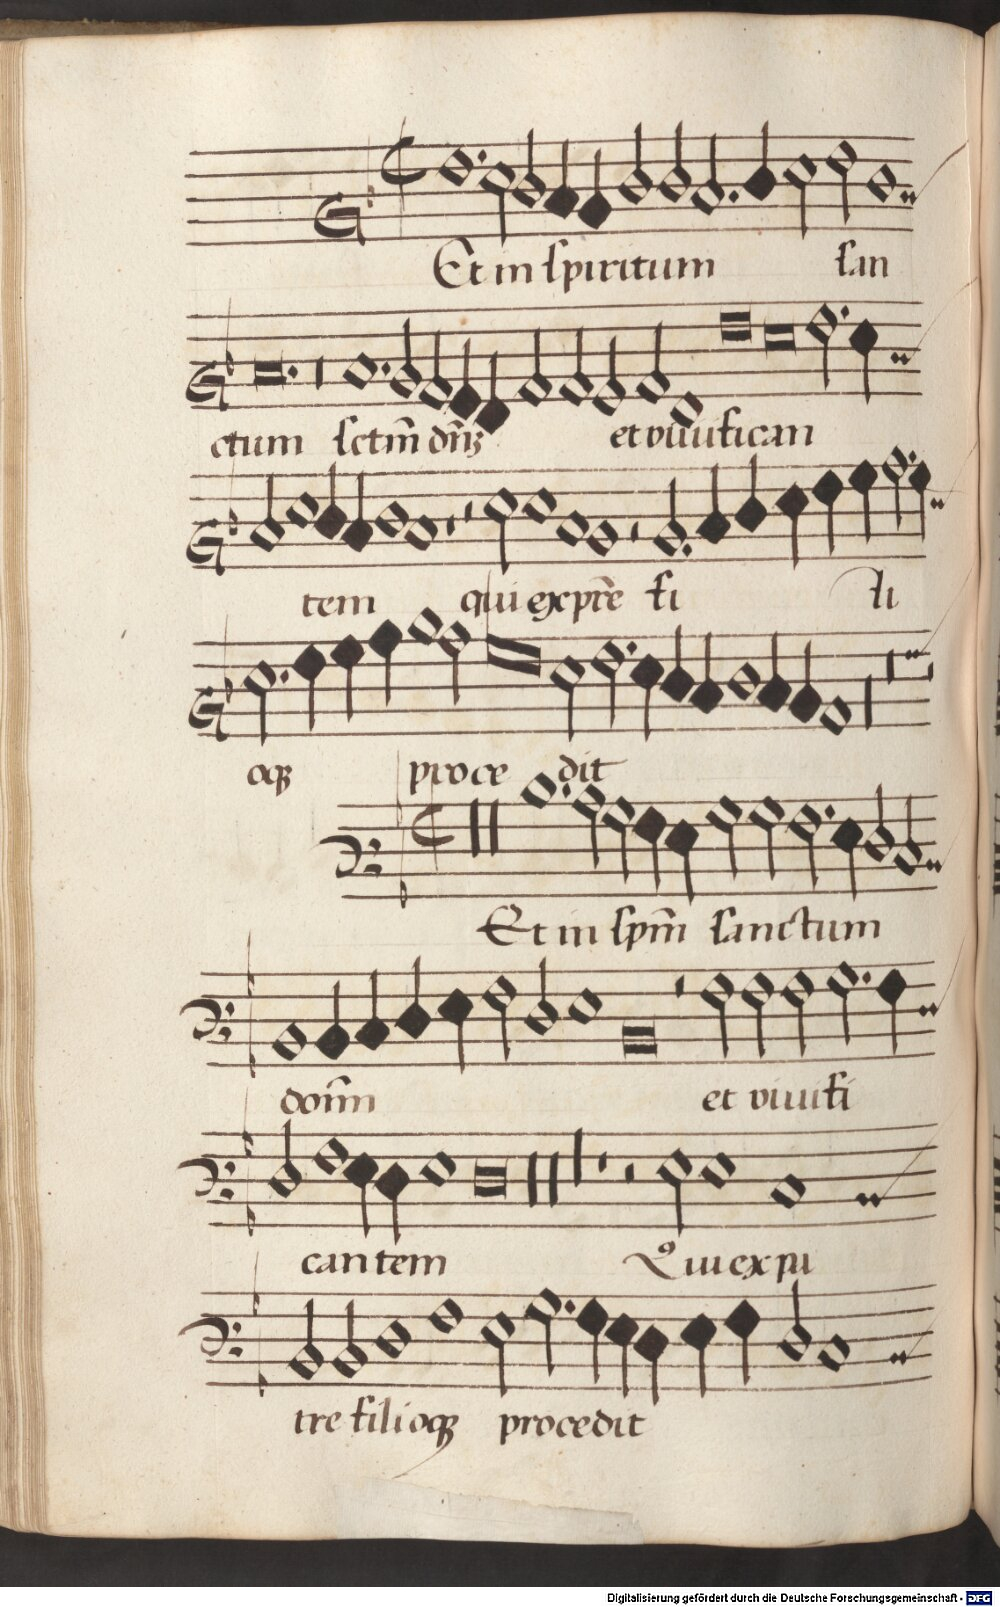 Et in spiritum san
ctum sctm̄ dn̄ꝫ et viuifican
tem qui ex pr̄e fi li
oqꝫ proce dit
Et in spm̄ sanctum
dom̄m et viuifi
can tem Qui ex pa
tre filioqꝫ procedit
Digitalisierung gefördert durch die Deutsche Forschungsgemeinschaft - DFG